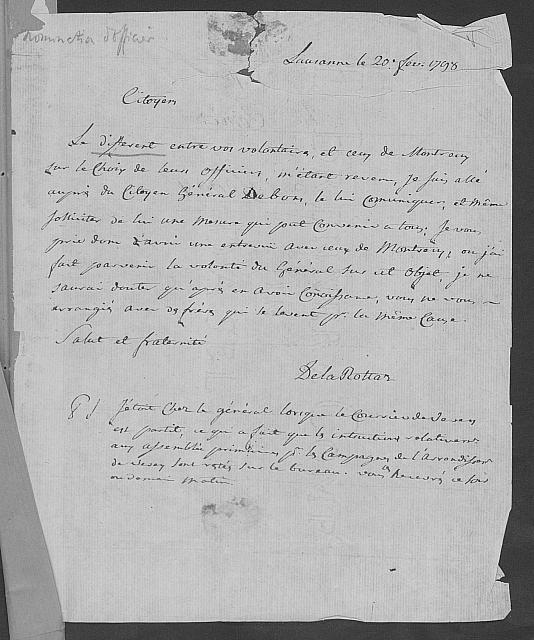 nomination d'officier
Lausanne le 20e fev. 1798
Citoyen
Le different entre vos volontaires, et ceux de Montreux
sur le Choix de leurs officiers, m'étant revenu, Je suis allé
auprès du Citoyen Général Debons, le lui Comuniquer, et même
solliciter de lui une Mesure qui put Convenir a tous; Je vous
prie donc d'avoir une entrevue avec ceux de Montreux, ou j'ai
fait parvenir la volonté du Général sur cet Objet, je ne
saurai douter qu'après en avoir Conoissance, vous ne vous
arrangiés avec des frères qui se levent pr. la même Cause.
Salut et fraternité
DelaRottaz
P.S. J'étois Chez le général lorsque le Courrier de Vevey
est partit, ce qui a fait que les intructions relativement
aux assemblée primaires pr. les Campagnes de l'Arrondissemt
de Vevey sont restés sur le bureau. vous les Recevrés ce soir
ou demain matin